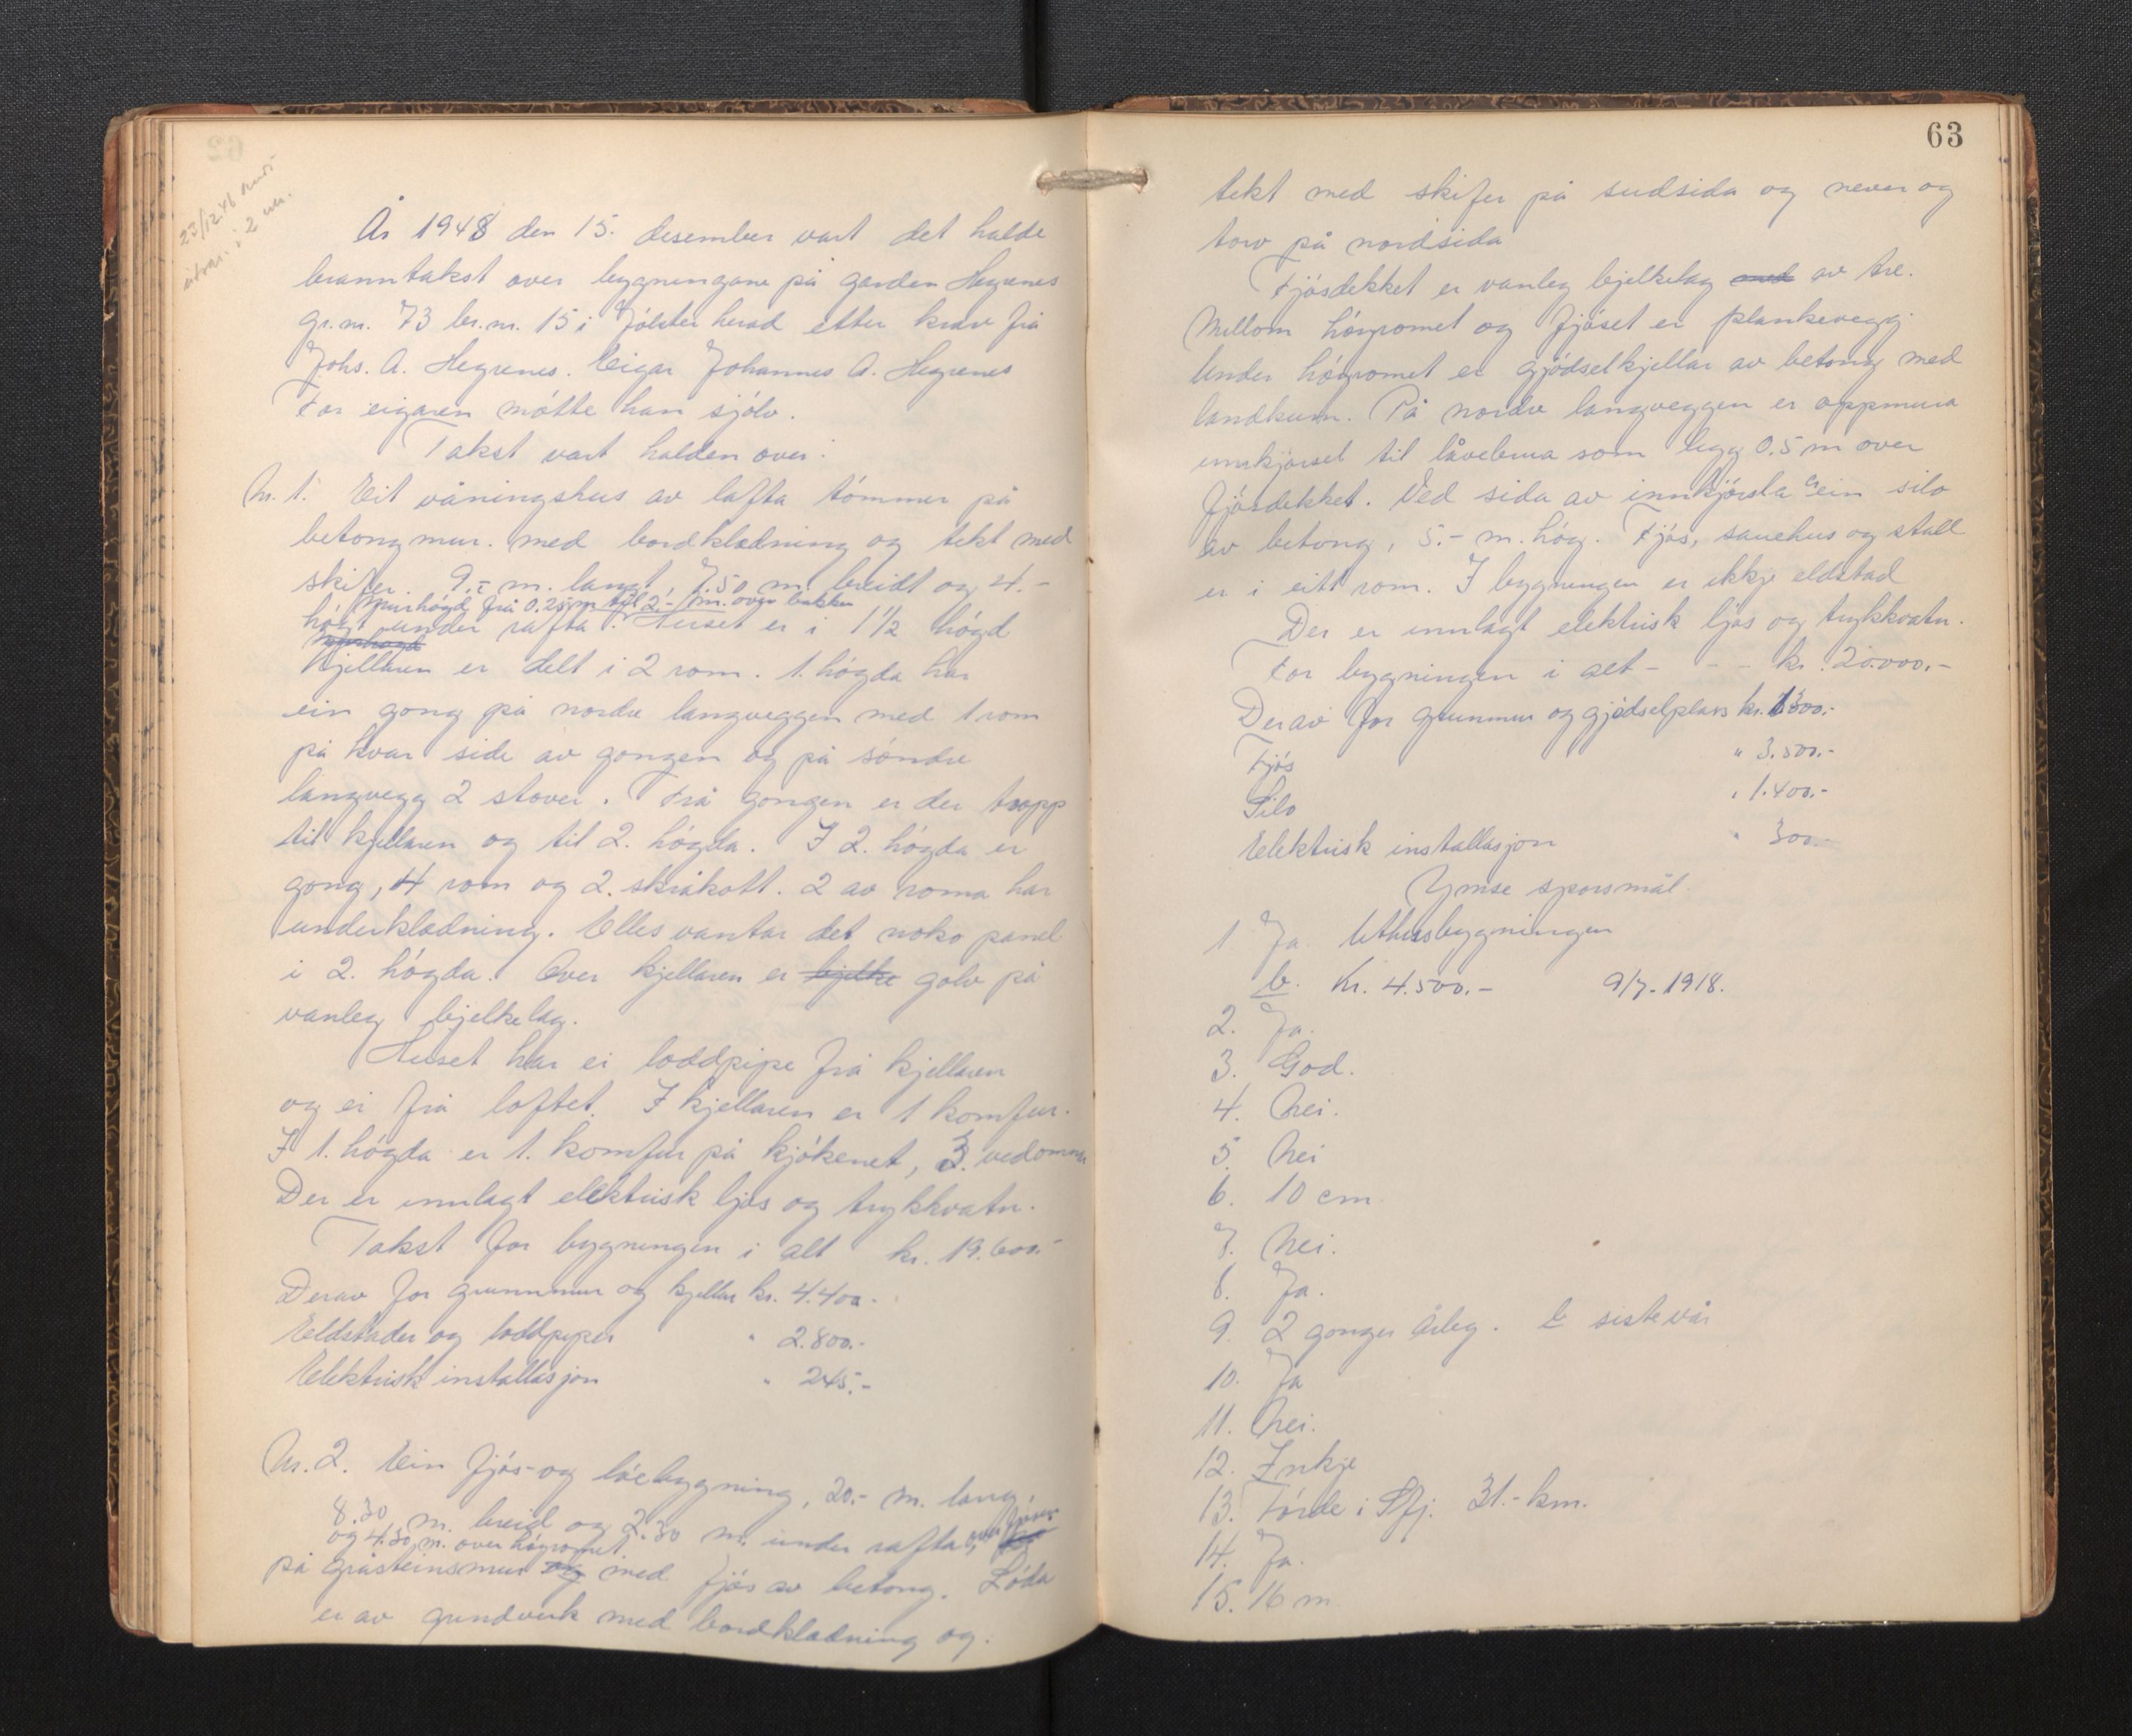 År 1948 den 15. desember vart det halde
branntakst over bygningane på garden Hegrenes
gr.nr. 73 br.nr. 15 i Jölster herad etter krav frå
Johs. A. Hegrenes. Eigar Johannes A. Hegrenes
For eigaren mötte han sjölv.
Takst vart halden over:
Nr. 1. Eit våningshus av lafta tömmer på
betongmur. med bordkledning og tekt med
skifer. 9.- m. langt, 7.50 m. breidt og 4.-
murhögd frå 0.25 m til 2.- m. over bakken
högt under rafta. Huset er i 1½ högd
Kjellaren er delt i 2 rom. 1. högda har
ein gong på nordre langveggen med 1 rom
på kvar side av gongen og på söndre
langvegg 2 stover. Frå gongen er der tropp
til kjellaren og til 2. högda. I 2. högda er
gong, 4 rom og 2. skråkott. 2 av roma har
underkledning. Elles vantar det noko panel
i 2. högda. Over kjellaren er bjelke golv på
vanleg bjelkelag.
Huset har ei loddpipe frå kjellaren
og ei frå loftet. I kjellaren er 1 komfur.
I 1. högda er 1. komfur på kjökenet, 3. vedomnar
Der er innlagt elektrisk ljos og trykkvatn.
Takst for bygningen i alt kr. 19.600.-
Derav for grunnmur og kjellar kr. 4.400.-
Eldstader og loddpiper " 2.800.-
Elektrisk installasjon " 245.-
Nr. 2. Ein fjös- og löebygning, 20.- m. lang,
8.30 m. breid og 2.30 m. under rafta, over fjöset
og 4.30 m. over höyromet
på gråsteinsmur og med fjös av betong. Löda
er av grindverk med bordkledning og.
63
tekt med skifer på sudsida og never og
torv på nordsida
Fjösdekket er vanleg bjelkelag med av tre.
Mellom höyromet og fjöset er plankevegg.
Under höyromet er gjödselkjellar av betong med
landkum. På nordre langveggen er oppmura
innkjörsel til låvebrua som ligg 0.5 m over
fjösdekket. Ved sida av innkjörsla er ein silo
av betong, 5.- m. hög. Fjös, sauehus og stall
er i eitt rom. I bygningen er ikkje eldstad
Der er innlagt elektrisk ljos og trykkvatn.
For bygningen i alt - - - kr. 20.000.-
Derav for grunnmur og gjödselplass kr. 1300.-
Fjös " 3.500.-
Silo " 1.400.-
Elektrisk installasjon " 300.-
Ymse sporsmål.
1. Ja. Uthusbygningen
b. Kr. 4.500.- 9/7-1918.
2. Ja.
3. God.
4. Nei.
5. Nei
6. 10 cm.
7. Nei.
8. Ja.
9. 2 gonger årleg. b siste vår
10. Ja
11. Nei.
12. Inkje
13. Förde i Sfj. 31.- km.
14. Ja.
15. 16 m